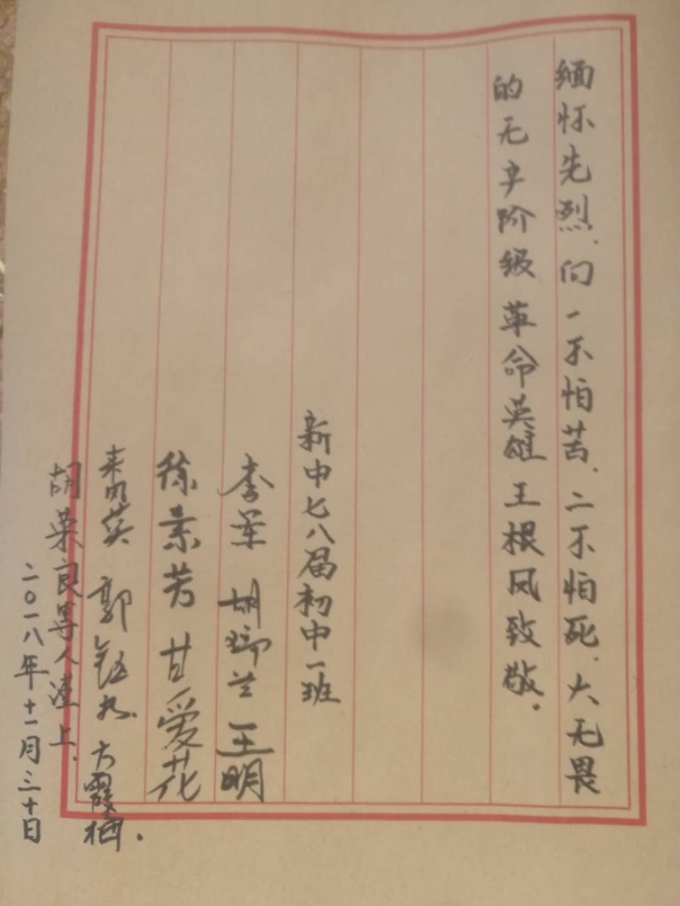 缅怀先烈、向一不怕苦、二不怕死、大无畏
的无产阶级革命英雄王根风致敬.
新中七八届初中一班
李军 胡瑞兰 王明
徐素芳 甘爱花
英 郭 方霞梅.
胡荣良等人谨上.
二〇一八年十一月三十日